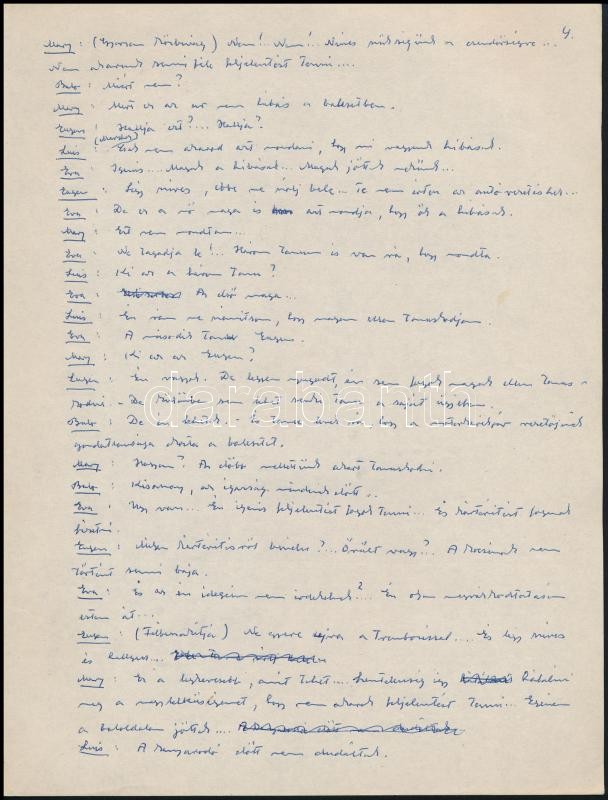 4.
Mary: (Gyorsan közbevág) Nem!.. Nem!.. Nincs szükségünk a rendőrségre...
Nem akarunk semmi féle feljelentést tenni....
Balo: Miért nem?
Mary: Mert ez az úr nem hibás a balesetben.
Eugen: Hallja ezt?... Hallja?
Luis: (Maryhoz) Csak nem akarod azt mondani, hogy mi vagyunk hibásak.
Eva: Igenis... Maguk a hibásak... Maguk jöttek nekünk...
Eugen: Légy szíves, ebbe ne szólj bele... Te nem értesz az autóvezetéshez...
Eva: De ez a nő maga is azt mondja, hogy ők a hibásak.
Mary: Ezt nem mondtam...
Eva: Ne tagadja le!.. Három tanum is van rá, hogy mondta.
Luis: Ki az a három tanu?
Eva: Az első maga...
Luis: Én rám ne számítson, hogy magam ellen tanuskodjam.
Eva: A második tanu Eugen.
Mary: Ki az az Eugen?
Eugen: Én vagyok. De legyen nyugodt, én sem fogok maguk ellen tanus-
kodni. - De különben sem lehet senki tanu a saját ügyében.
Balo: De én láttam. És tanu leszek rá hogy a motorkerékpár vezetőjének
gondatlansága okozta a balesetet.
Mary: Hogyan? Az előbb mellettünk akart tanuskodni.
Balo: Kisasszony, az igazság mindenek előtt..
Eva: Ugy van... Én igenis feljelentést fogok tenni... És kártérítést fogunk
fizetni.
Eugen: Milyen kártérítésről beszélsz?... Őrült vagy?.. A kocsinak nem
történt semmi baja.
Eva: És az én idegeim nem érdekelnek?.. Én olyan megrázkódtatáson
estem át...
Eugen: (Félbeszakítja) Ne gyere újra a Tromboussal.... És légy szíves
és hallgass....
Mary: Ez a legkevesebb, amit tehet.... Lentebb így hálálni
meg a nagylelkűségemet, hogy nem akarok feljelentést tenni... Egyem
a baloldalon jöttek....
Luis: A kanyarodó előtt nem dudáltak.
darabanth